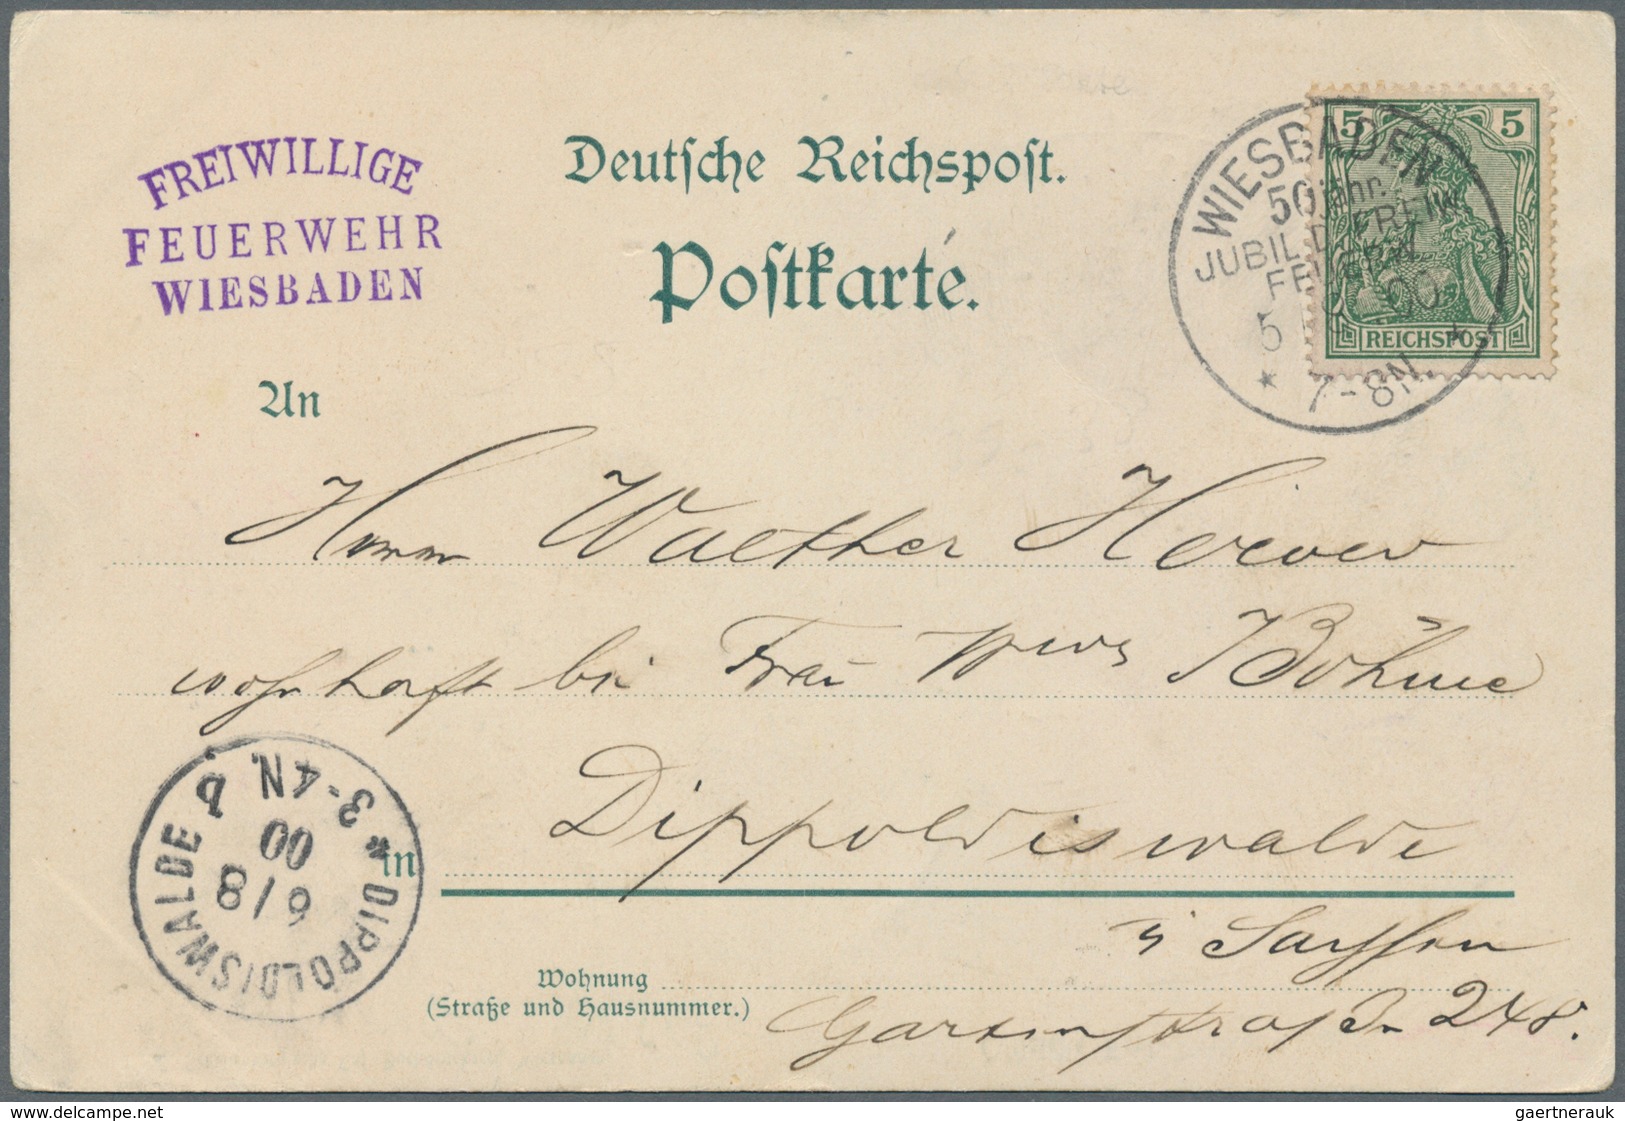 FREIWILLIGE
FEUERWEHR
WIESBADEN
Deutsche Reichspost.
Postkarte.
5 5
REICHSPOST
WIESBADEN
50jähr.
JUBIL. D. FREIW.
FEUERW.
5 00
7-8N.
An
Herrn Walther
wohnhaft bei Frau Böhme
in Dippoldiswalde
i Sachsen
Wohnung
(Straße und Hausnummer.)
Gartenstraße 248.
* DIPPOLDISWALDE *
6/8
00
3-4N.
delcampe.net
gaertnerauk